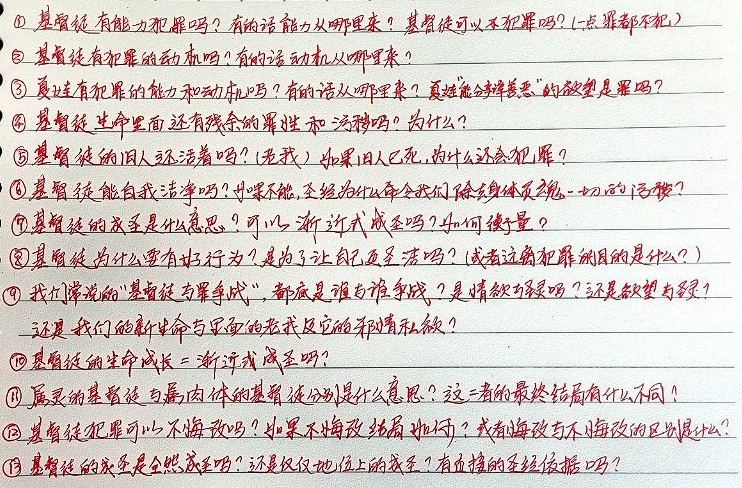 ① 基督徒有能力犯罪吗？有的话能力从哪里来？基督徒可以不犯罪吗？(一点罪都不犯)
② 基督徒有犯罪的动机吗？有的话动机从哪里来？
③ 夏娃有犯罪的能力和动机吗？有的话从哪里来？夏娃"能分辨善恶"的欲望是罪吗？
④ 基督徒生命里面还有残余的罪性和污秽吗？为什么？
⑤ 基督徒的旧人还活着吗？(老我) 如果旧人已死，为什么还会犯罪？
⑥ 基督徒能自我洁净吗？如果不能，圣经为什么命令我们除去身体灵魂一切的污秽？
⑦ 基督徒的成圣是什么意思？可以渐进式成圣吗？如何衡量？
⑧ 基督徒为什么要有好行为？是为了让自己更圣洁吗？(或者远离犯罪的目的是什么？)
⑨ 我们常说的"基督徒与罪争战"，都底是谁与谁争战？是情欲与灵吗？还是欲望与灵？
还是我们的新生命与里面的老我及它的邪情私欲？
⑩ 基督徒的生命成长 = 渐进式成圣吗？
⑪ 属灵的基督徒与属肉体的基督徒分别是什么意思？这二者的最终结局有什么不同？
⑫ 基督徒犯罪可以不悔改吗？如果不悔改结局如何？或者悔改与不悔改的区别是什么？
⑬ 基督徒的成圣是全然成圣吗？还是仅仅地位上的成圣？有直接的圣经依据吗？